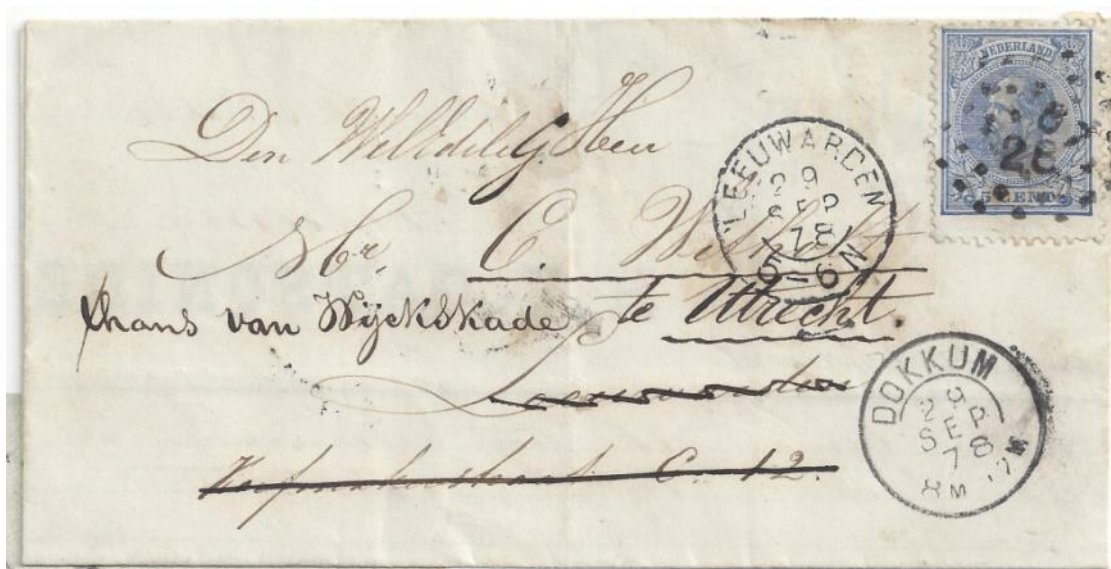 NEDERLAND
28
5 CENT
Den WelEdelG. Heer
LEEUWARDEN
29
SEP
78
5-6N
Mr. C.
thans van Wijckskade te Utrecht.
Leeuwarden
C. 12.
DOKKUM
29
SEP
78
8M